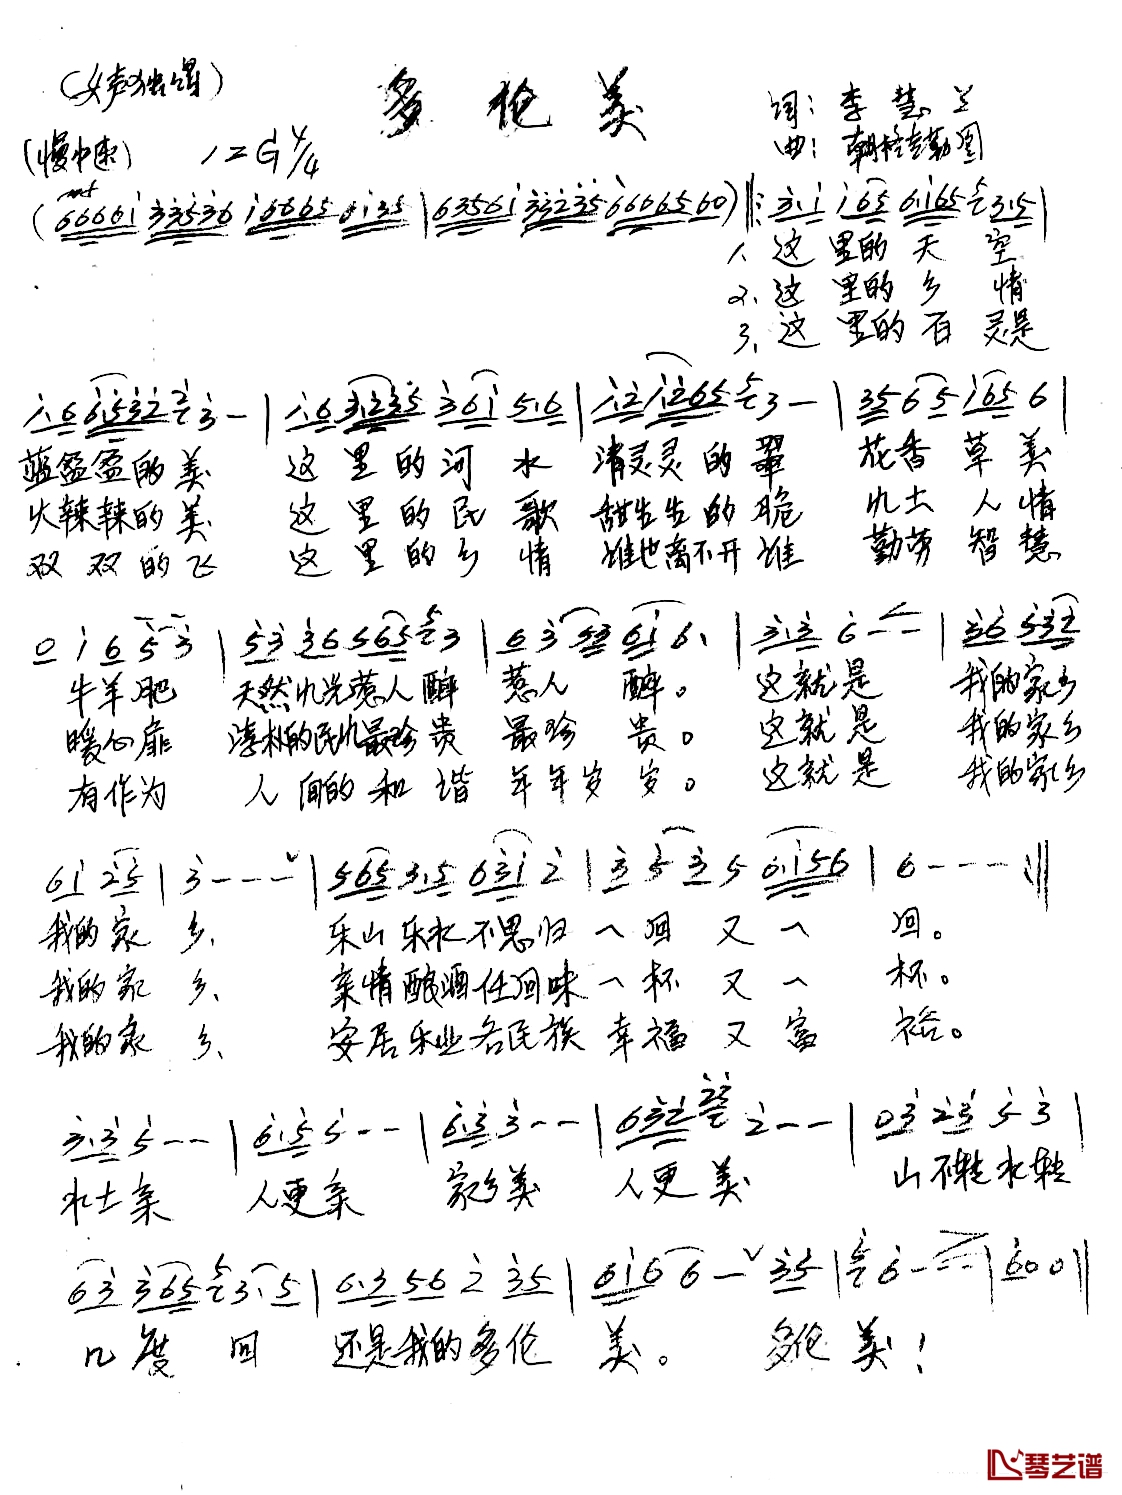 (女声独唱)
多伦美
词:李慧兰
(慢中速) 1=G 4/4
曲:朝格吉勒图
mf
(66661 33536 16665 0135 | 63561 33235 6606560) ‖: 3.1 165 6165 3.5 |
1、这里的天空
2、这里的乡情
3、这里的百灵是
1.6 16532 3-- | 1.6 3.235 361 5.6 | 1.2 1.265 3-- | 35 65 165 6 |
蓝盈盈的美 这里的河水 清灵灵的翠 花香草美
火辣辣的美 这里的民歌 甜生生的脆 风土人情
双双的飞 这里的乡情 谁也离不开谁 勤劳智慧
0 1 6 5 3 | 53 36 565 3 | 6 3 53 61 6. | 3.3 6-- | 36 532 |
牛羊肥 天然风光惹人醉 惹人醉。 这就是 我的家乡
暖心扉 淳朴的民风最珍贵 最珍贵。 这就是 我的家乡
有作为 人间的和谐 年年岁岁。 这就是 我的家乡
61 25 | 3--- | 565 3.5 631 2 | 3 5 3 5 6.156 | 6--- :‖
我的家乡、 乐山乐水不思归 一回又一回。
我的家乡、 亲情酿酒任回味 一杯又一杯。
我的家乡、 安居乐业各民族 幸福又富裕。
3.3 5-- | 6.5 5-- | 6.3 3-- | 632 2-- | 03 23 5 3 |
水土亲 人更亲 家乡美 人更美 山不转水转
63 365 3.5 | 6.3 56 2 35 | 616 6- 35 | 6--- | 600 ‖
几度回 还是我的多伦美。 多伦美!
琴艺谱